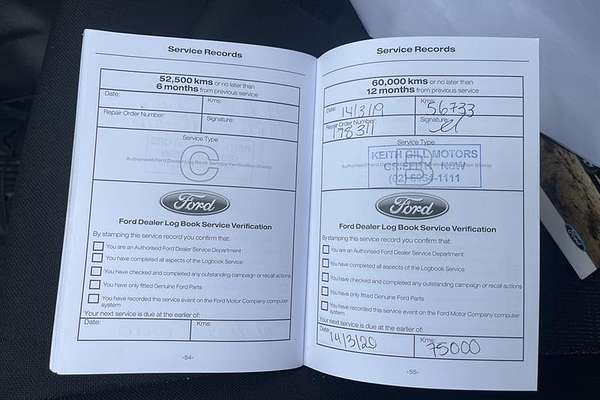 Service Records
52,500 kms or no later than
6 months from previous service
Date:
Kms:
Repair Order Number:
Signature:
Service Type
C
Ford
Ford Dealer Log Book Service Verification
By stamping the service record you confirm that:
You are an Authorised Ford Dealer Service Department
You have completed all aspects of the Logbook Service
You have checked and completed any outstanding campaign or recall actions
You have only fitted Genuine Ford Parts
You have recorded this service event on the Ford Motor Company computer
system
Your next service is due at the earlier of:
Date:
Kms:
-54-
Service Records
60,000 kms or no later than
12 months from previous service
Date: 14/3/19
Kms: 56733
Repair Order Number: 178311
Signature:
Service Type
B
KEITH GILL MOTORS
NSW
Ford
Ford Dealer Log Book Service Verification
By stamping the service record you confirm that:
You are an Authorised Ford Dealer Service Department
You have completed all aspects of the Logbook Service
You have checked and completed any outstanding campaign or recall actions
You have only fitted Genuine Ford Parts
You have recorded this service event on the Ford Motor Company computer
system
Your next service is due at the earlier of:
Date: 14/3/20
Kms: 75000
-55-